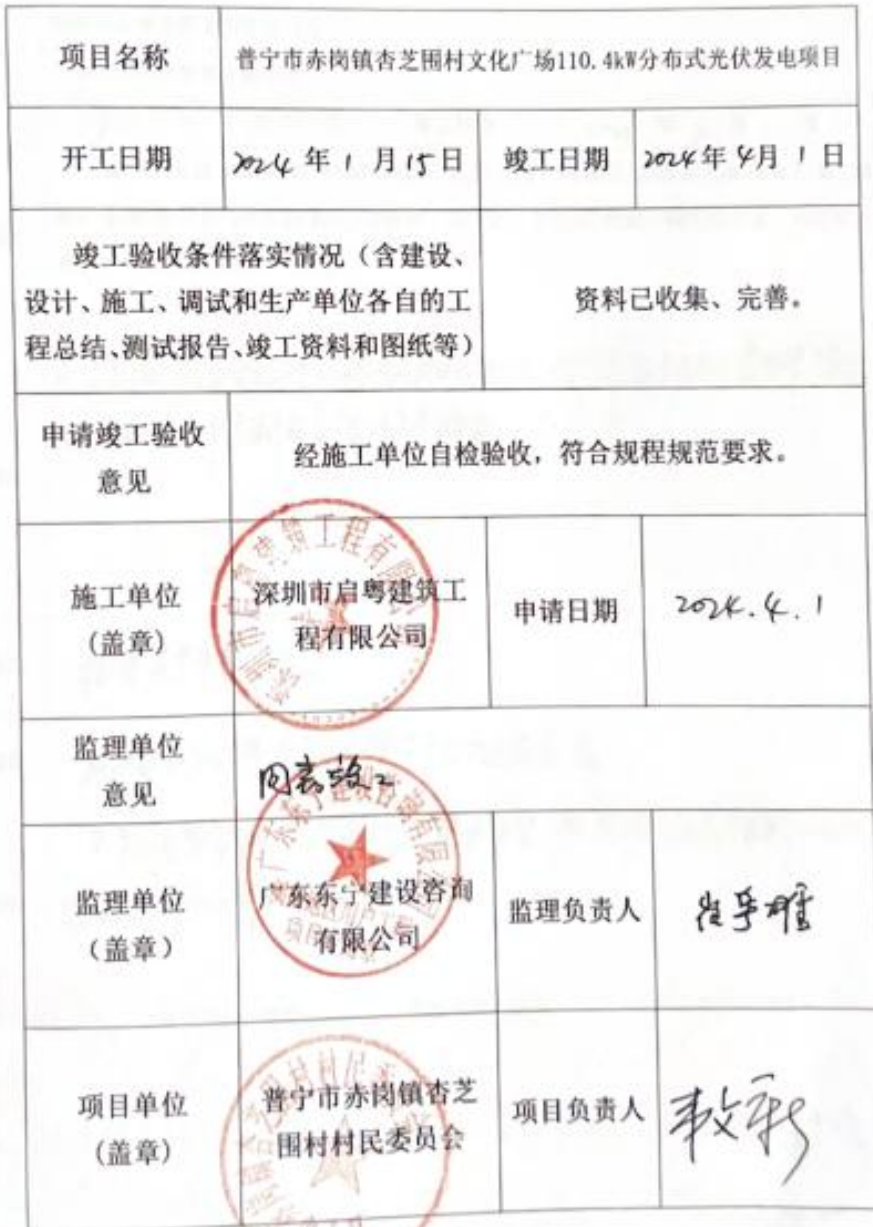 项目名称
普宁市赤岗镇杏芝围村文化广场110.4kW分布式光伏发电项目
开工日期
2024年1月15日
竣工日期
2024年4月1日
竣工验收条件落实情况（含建设、
设计、施工、调试和生产单位各自的工
程总结、测试报告、竣工资料和图纸等）
资料已收集、完善。
申请竣工验收
意见
经施工单位自检验收，符合规程规范要求。
施工单位
(盖章)
深圳市启粤建筑工
程有限公司
深圳市启粤建筑工程有限公司
申请日期
2024.4.1
监理单位
意见
同意竣工
监理单位
（盖章）
广东东宁建设咨询
有限公司
广东东宁建设咨询有限公司
监理负责人
项目单位
(盖章)
普宁市赤岗镇杏芝
围村村民委员会
项目负责人